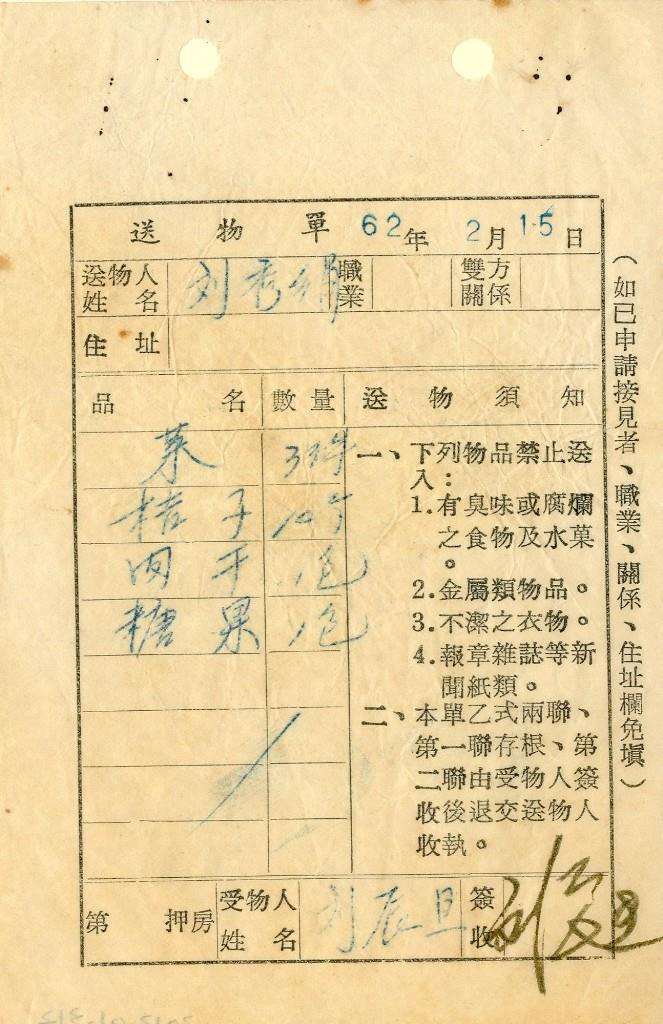 送物單 62年2月15日
送物人姓名 刘秀娟 職業 雙方關係
住址
品名 數量 送物須知
菜 3件
桔子 10个
肉干 1包
糖果 1包
一、下列物品禁止送入:
1.有臭味或腐爛之食物及水菓。
2.金屬類物品。
3.不潔之衣物。
4.報章雜誌等新聞紙類。
二、本單乙式兩聯、第一聯存根、第二聯由受物人簽收後退交送物人收執。
第 押房 受物人姓名 刘辰旦 簽收
(如已申請接見者、職業、關係、住址欄免填)